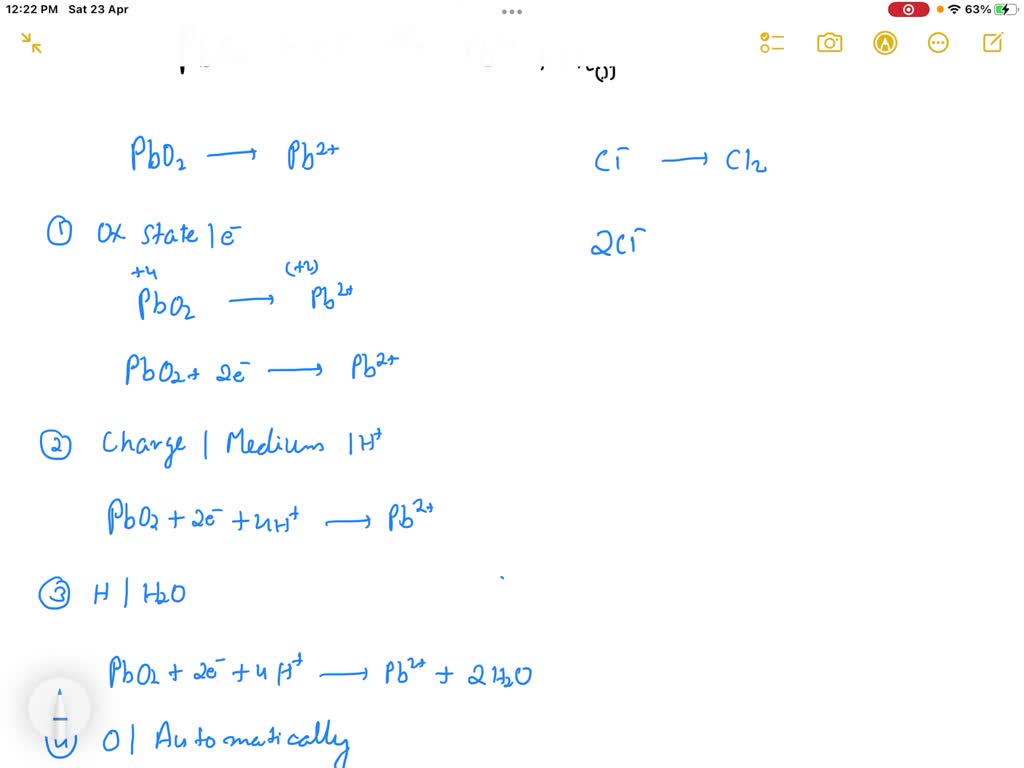 12:22 PM Sat 23 Apr
63%
PbO₂ ⟶ Pb²⁺
Cl⁻ ⟶ Cl₂
① Ox state | e⁻
2Cl⁻
+4 (+2)
PbO₂ ⟶ Pb²⁺
PbO₂ + 2e⁻ ⟶ Pb²⁺
② Charge | Mediums | H⁺
PbO₂ + 2e⁻ + 4H⁺ ⟶ Pb²⁺
③ H | H₂O
PbO₂ + 2e⁻ + 4H⁺ ⟶ Pb²⁺ + 2H₂O
④ O | Automatically